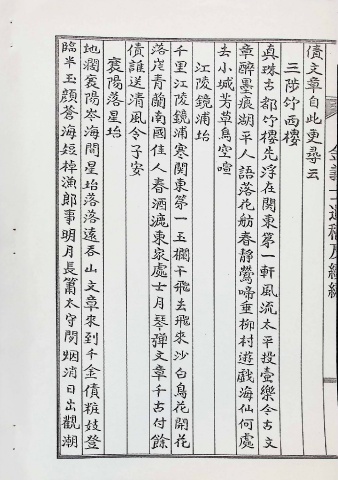 債文章自此更尋云
三陟竹西樓
真珠古都竹樓先浮在関東第一軒風流太平投壺樂今古文
章醉墨痕湖平人語落花舫春静鶯啼垂柳村遊戲海仙何處
去小城芳草鳥空喧
江陵鏡浦坮
千里江陵鏡浦寒関東第一玉欄干飛去飛來沙白鳥花開花
落岸青蘭南國佳人春酒漉東家處士月琴彈文章千古付餘
債誰送清風令子安
襄陽落星坮
地濶襄陽岑海間星坮落落遠吞山文章來到千金債粧妓登
臨半玉顔蒼海短棹漁郎事明月長簫太守閑烟消日出觀潮